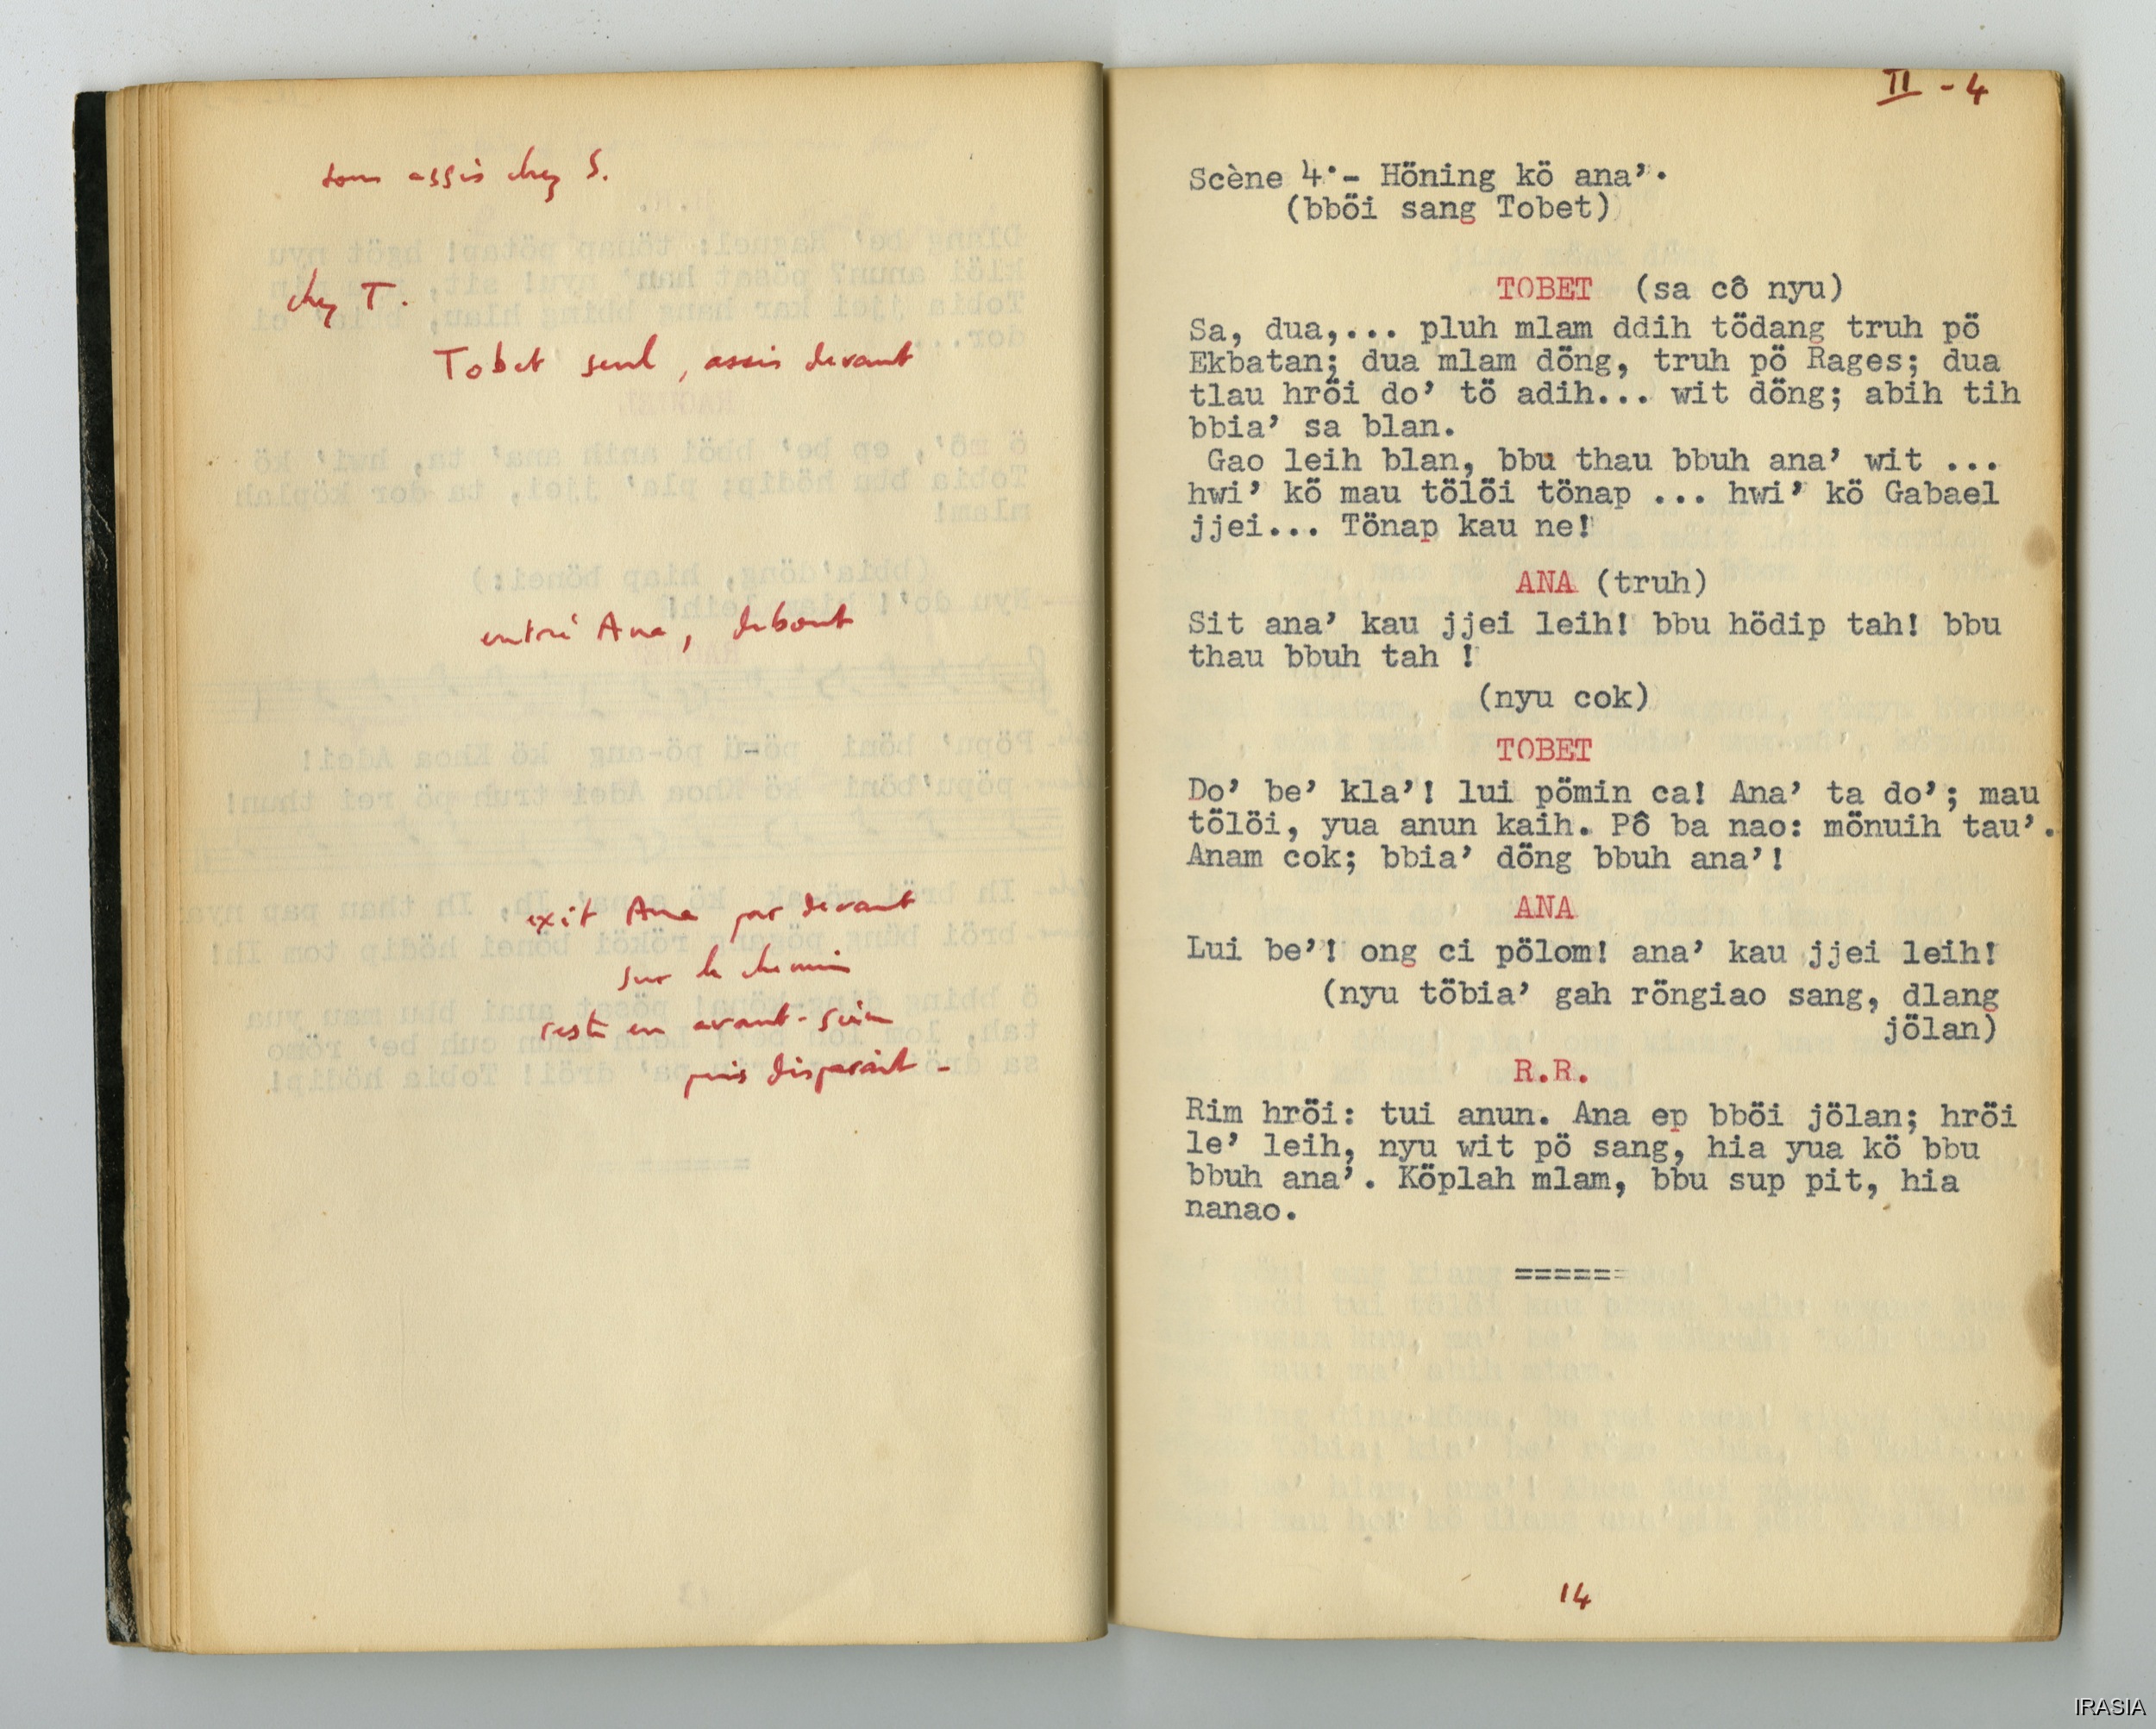 tous assis chez S.
chez T.
Tobet seul, assis devant
entre Ana, debout
exit Ana par devant
sur le chemin
reste en avant-scène
puis disparait -
II - 4
Scène 4.- Höning kö ana’.
(bböi sang Tobet)
TOBET (sa cô nyu)
Sa, dua,... pluh mlam ddih tödang truh pö
Ekbatan; dua mlam döng, truh pö Rages; dua
tlau hröi do’ tö adih... wit döng; abih tih
bbia’ sa blan.
Gao leih blan, bbu thau bbuh ana’ wit ...
hwi’ kö mau tölöi tönap ... hwi’ kö Gabael
jjei... Tönap kau ne!
ANA (truh)
Sit ana’ kau jjei leih! bbu hödip tah! bbu
thau bbuh tah !
(nyu cok)
TOBET
Do’ be’ kla’! lui pömin ca! Ana’ ta do’; mau
tölöi, yua anun kaih. Pô ba nao: mönuih tau’.
Anam cok; bbia’ döng bbuh ana’!
ANA
Lui be’! ong ci pölom! ana’ kau jjei leih!
(nyu töbia’ gah röngiao sang, dlang
jölan)
R.R.
Rim hröi: tui anun. Ana ep bböi jölan; hröi
le’ leih, nyu wit pö sang, hia yua kö bbu
bbuh ana’. Köplah mlam, bbu sup pit, hia
nanao.
======
14
IRASIA